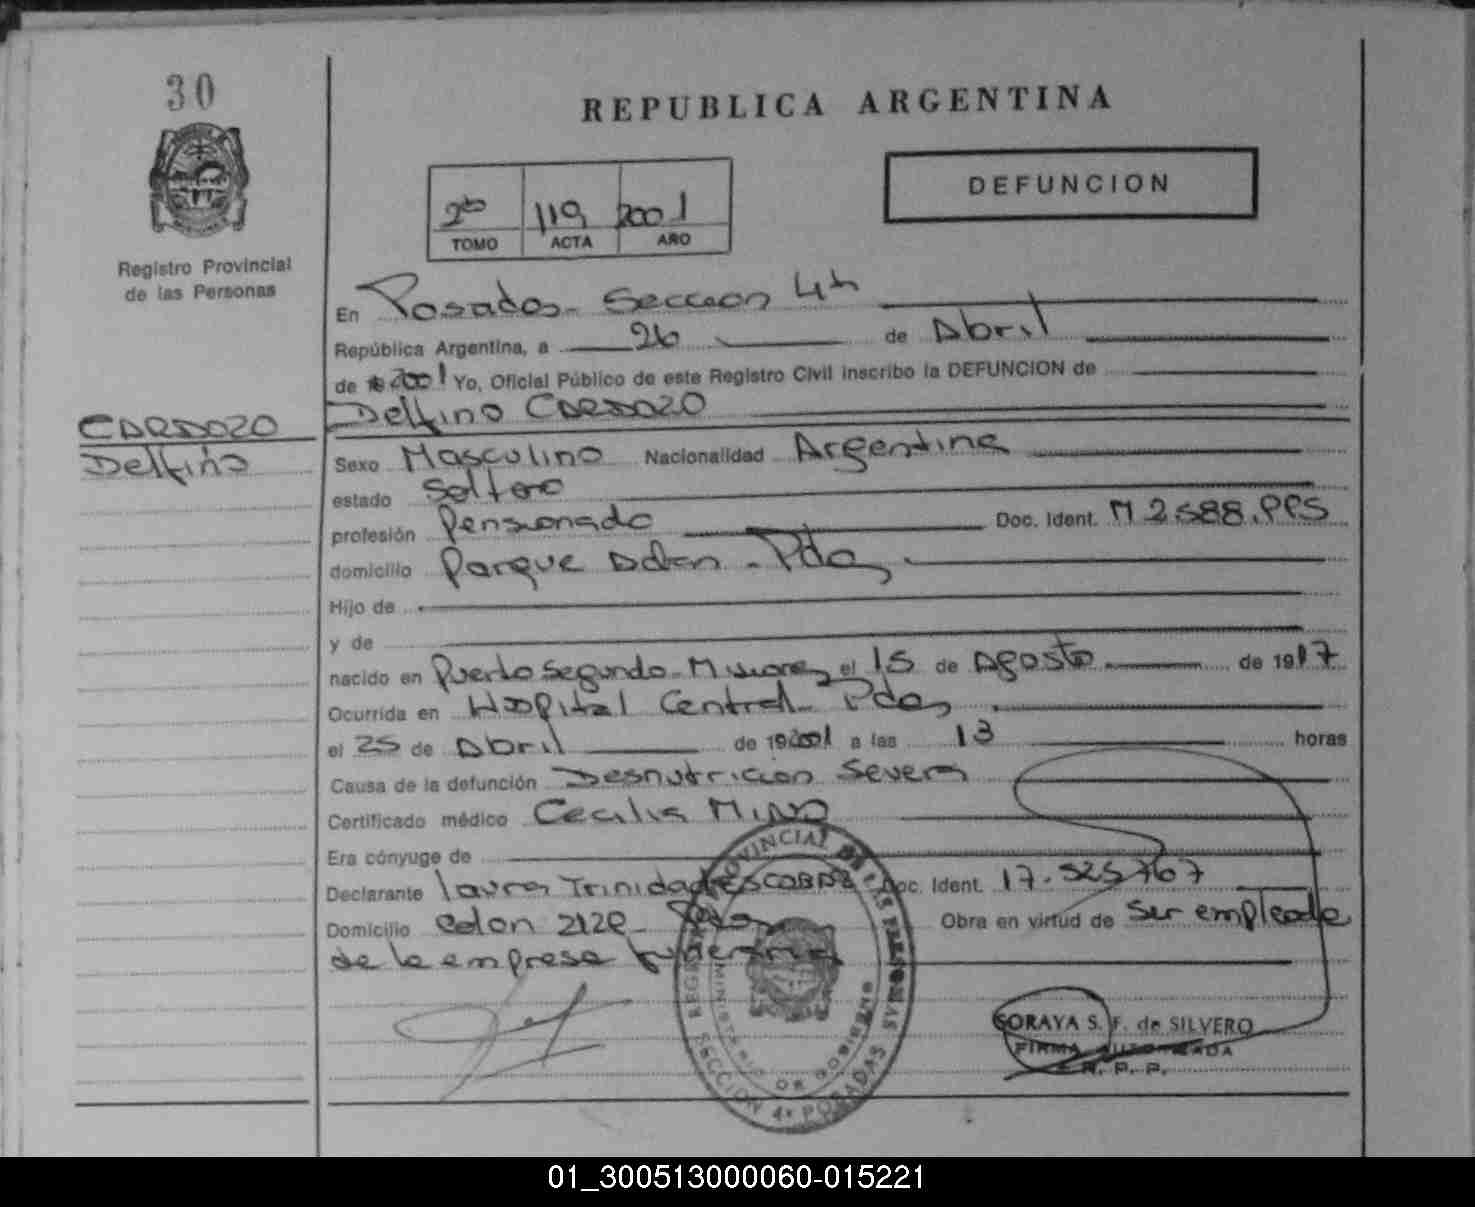 30
REPUBLICA ARGENTINA
DEFUNCION
2do 119 2001
TOMO ACTA AÑO
Registro Provincial
de las Personas
En Posadas - Seccion 4ta
República Argentina, a 26 de Abril
de 2001 Yo, Oficial Público de este Registro Civil inscribo la DEFUNCION de
Delfino CARDOZO
CARDOZO
Delfino
Sexo Masculino Nacionalidad Argentina
estado Soltero
profesión Pensionado Doc. Ident. M 2588.
domicilio Parque Adan - Pdas
Hijo de
y de
nacido en Puerto Segundo - Misiones el 15 de Agosto de 1917
Ocurrida en Hospital Central - Pdas
el 25 de Abril de 192001 a las 13 horas
Causa de la defunción Desnutricion Severa
Certificado médico Cecilia MIÑO
Era cónyuge de
Declarante Laura Trinidad ESCOBAR Doc. Ident. 17.525767
Domicilio Colon 2128 - Pdas Obra en virtud de ser empleada
de la empresa funeraria
REGISTRO PROVINCIAL DE LAS PERSONAS
MINISTERIO DE GOBIERNO
SECCION 4ª POSADAS
SORAYA S. F. de SILVERO
FIRMA AUTORIZADA
R. P. P.
01_300513000060-015221